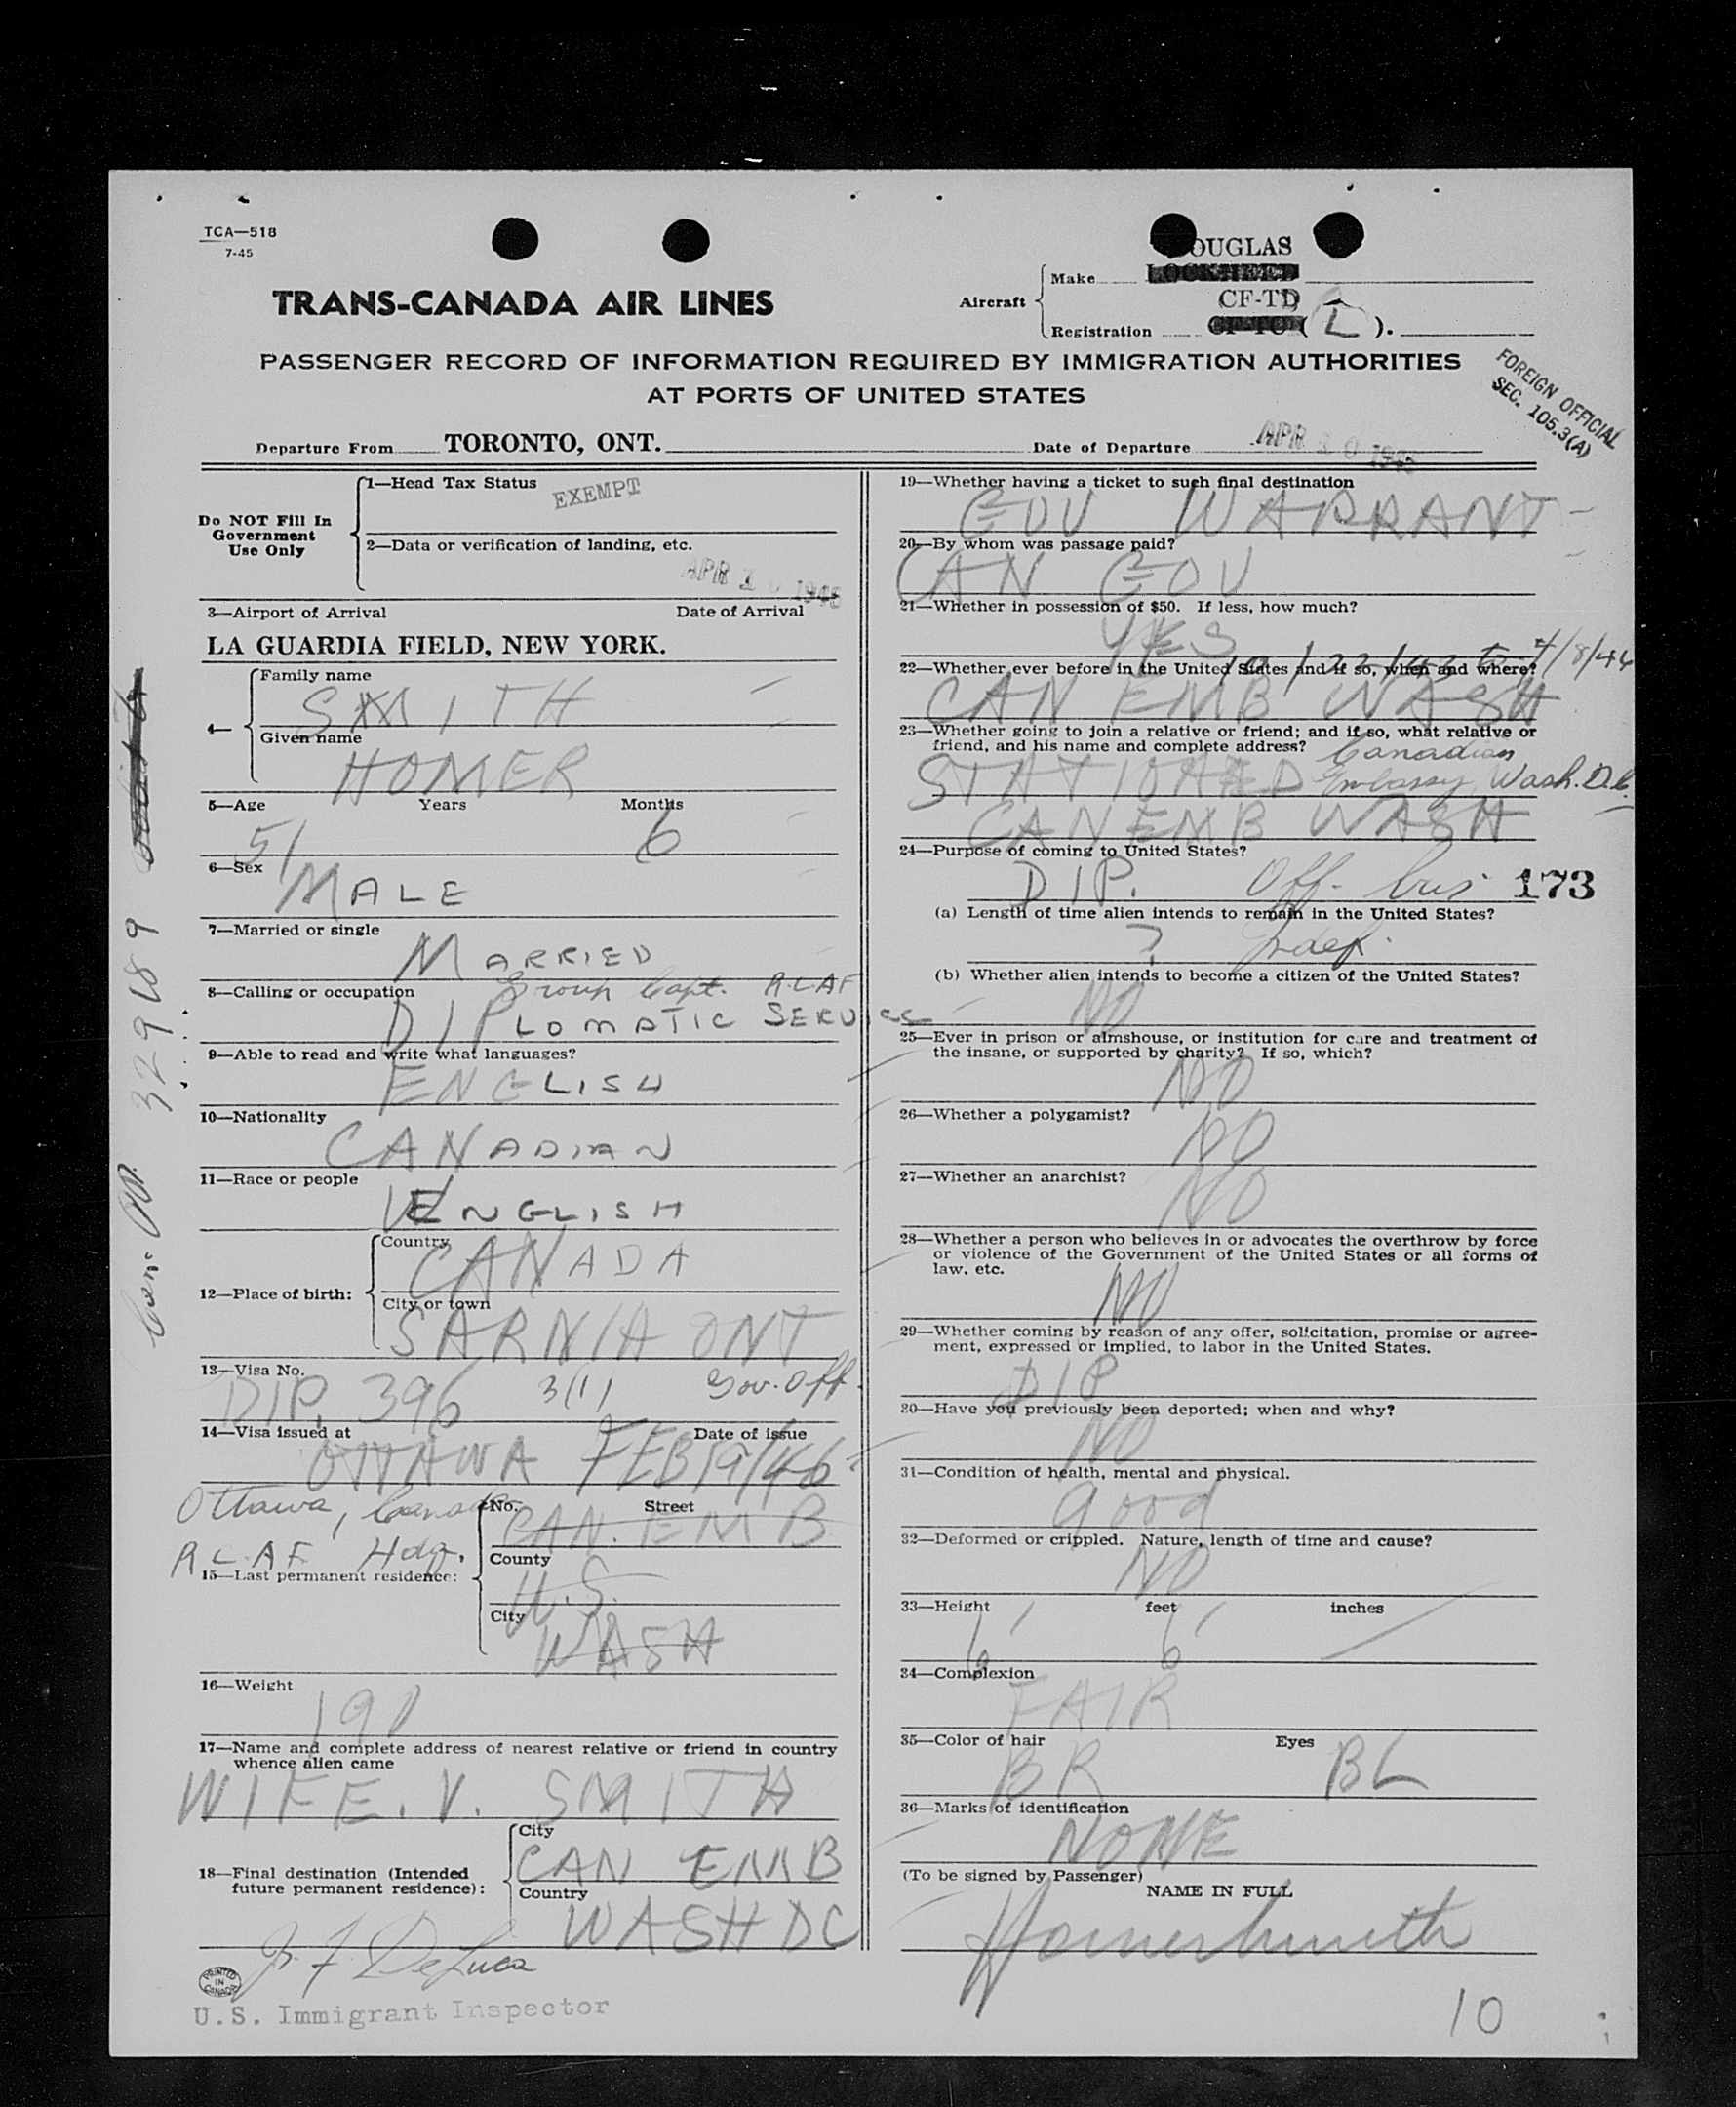 TCA—518
7-45
DOUGLAS
Make LOCKHEED
TRANS-CANADA AIR LINES
Aircraft
CF-TD
Registration CF-TC ( L ).
PASSENGER RECORD OF INFORMATION REQUIRED BY IMMIGRATION AUTHORITIES
AT PORTS OF UNITED STATES
FOREIGN OFFICIAL
SEC. 105.3(A)
Departure From TORONTO, ONT.
Date of Departure APR 10 1946
Do NOT Fill In
Government
Use Only
1—Head Tax Status
EXEMPT
2—Data or verification of landing, etc.
APR 10 1946
3—Airport of Arrival Date of Arrival
LA GUARDIA FIELD, NEW YORK.
4—
Family name
SMITH
Given name
HOMER
5—Age Years Months
51 6
6—Sex
MALE
7—Married or single
MARRIED
Group Capt. R.C.A.F
8—Calling or occupation
DIPLOMATIC SERVICE
9—Able to read and write what languages?
ENGLISH
10—Nationality
CANADIAN
11—Race or people
ENGLISH
12—Place of birth:
Country
CANADA
City or town
SARNIA ONT
13—Visa No.
DIP. 396 3(1) Gov. Off.
14—Visa issued at Date of issue
OTTAWA FEB 19/46
Ottawa, Canada
R.C.A.F. Hdq.
15—Last permanent residence:
No. Street
CAN. EMB
County
U.S.
City
WASH
16—Weight
190
17—Name and complete address of nearest relative or friend in country
whence alien came
WIFE. V. SMITH
18—Final destination (Intended
future permanent residence):
City
CAN EMB
Country
WASH DC
J. F. DeLuca
PRINTED
IN
CANADA
U.S. Immigrant Inspector
19—Whether having a ticket to such final destination
GOV WARRANT
20—By whom was passage paid?
CAN GOV
21—Whether in possession of $50. If less, how much?
YES
10/22/42 to 4/8/46
22—Whether ever before in the United States and if so, when and where?
CAN EMB WASH
23—Whether going to join a relative or friend; and if so, what relative or
friend, and his name and complete address?
Canadian
Embassy, Wash. D.C.
STATIONED
CAN EMB WASH
24—Purpose of coming to United States?
DIP. Off. bus 173
(a) Length of time alien intends to remain in the United States?
? Indef.
(b) Whether alien intends to become a citizen of the United States?
NO
25—Ever in prison or almshouse, or institution for care and treatment of
the insane, or supported by charity? If so, which?
NO
26—Whether a polygamist?
NO
27—Whether an anarchist?
NO
28—Whether a person who believes in or advocates the overthrow by force
or violence of the Government of the United States or all forms of
law, etc.
NO
29—Whether coming by reason of any offer, solicitation, promise or agree-
ment, expressed or implied, to labor in the United States.
DIP
30—Have you previously been deported; when and why?
NO
31—Condition of health, mental and physical.
good
32—Deformed or crippled. Nature, length of time and cause?
NO
33—Height feet inches
6' 6'
34—Complexion
FAIR
35—Color of hair Eyes
BR BL
36—Marks of identification
NONE
(To be signed by Passenger)
NAME IN FULL
Homer Smith
10
32989